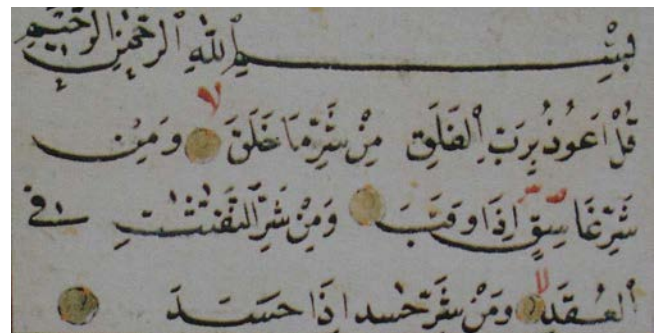 بِسْمِ اللّٰهِ الرَّحْمٰنِ الرَّحِيْمِ
قُلْ اَعُوْذُ بِرَبِّ الْفَلَقِ مِنْ شَرِّ مَا خَلَقَ وَمِنْ
شَرِّ غَاسِقٍ اِذَا وَقَبَ وَمِنْ شَرِّ النَّفّٰثٰتِ فِي
الْعُقَدِ وَمِنْ شَرِّ حٰسد اِذَا حَسَدَ